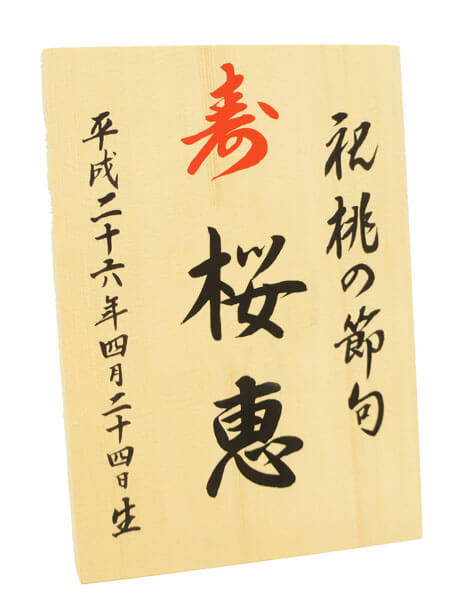 祝桃の節句
寿
桜恵
平成二十六年四月二十四日生